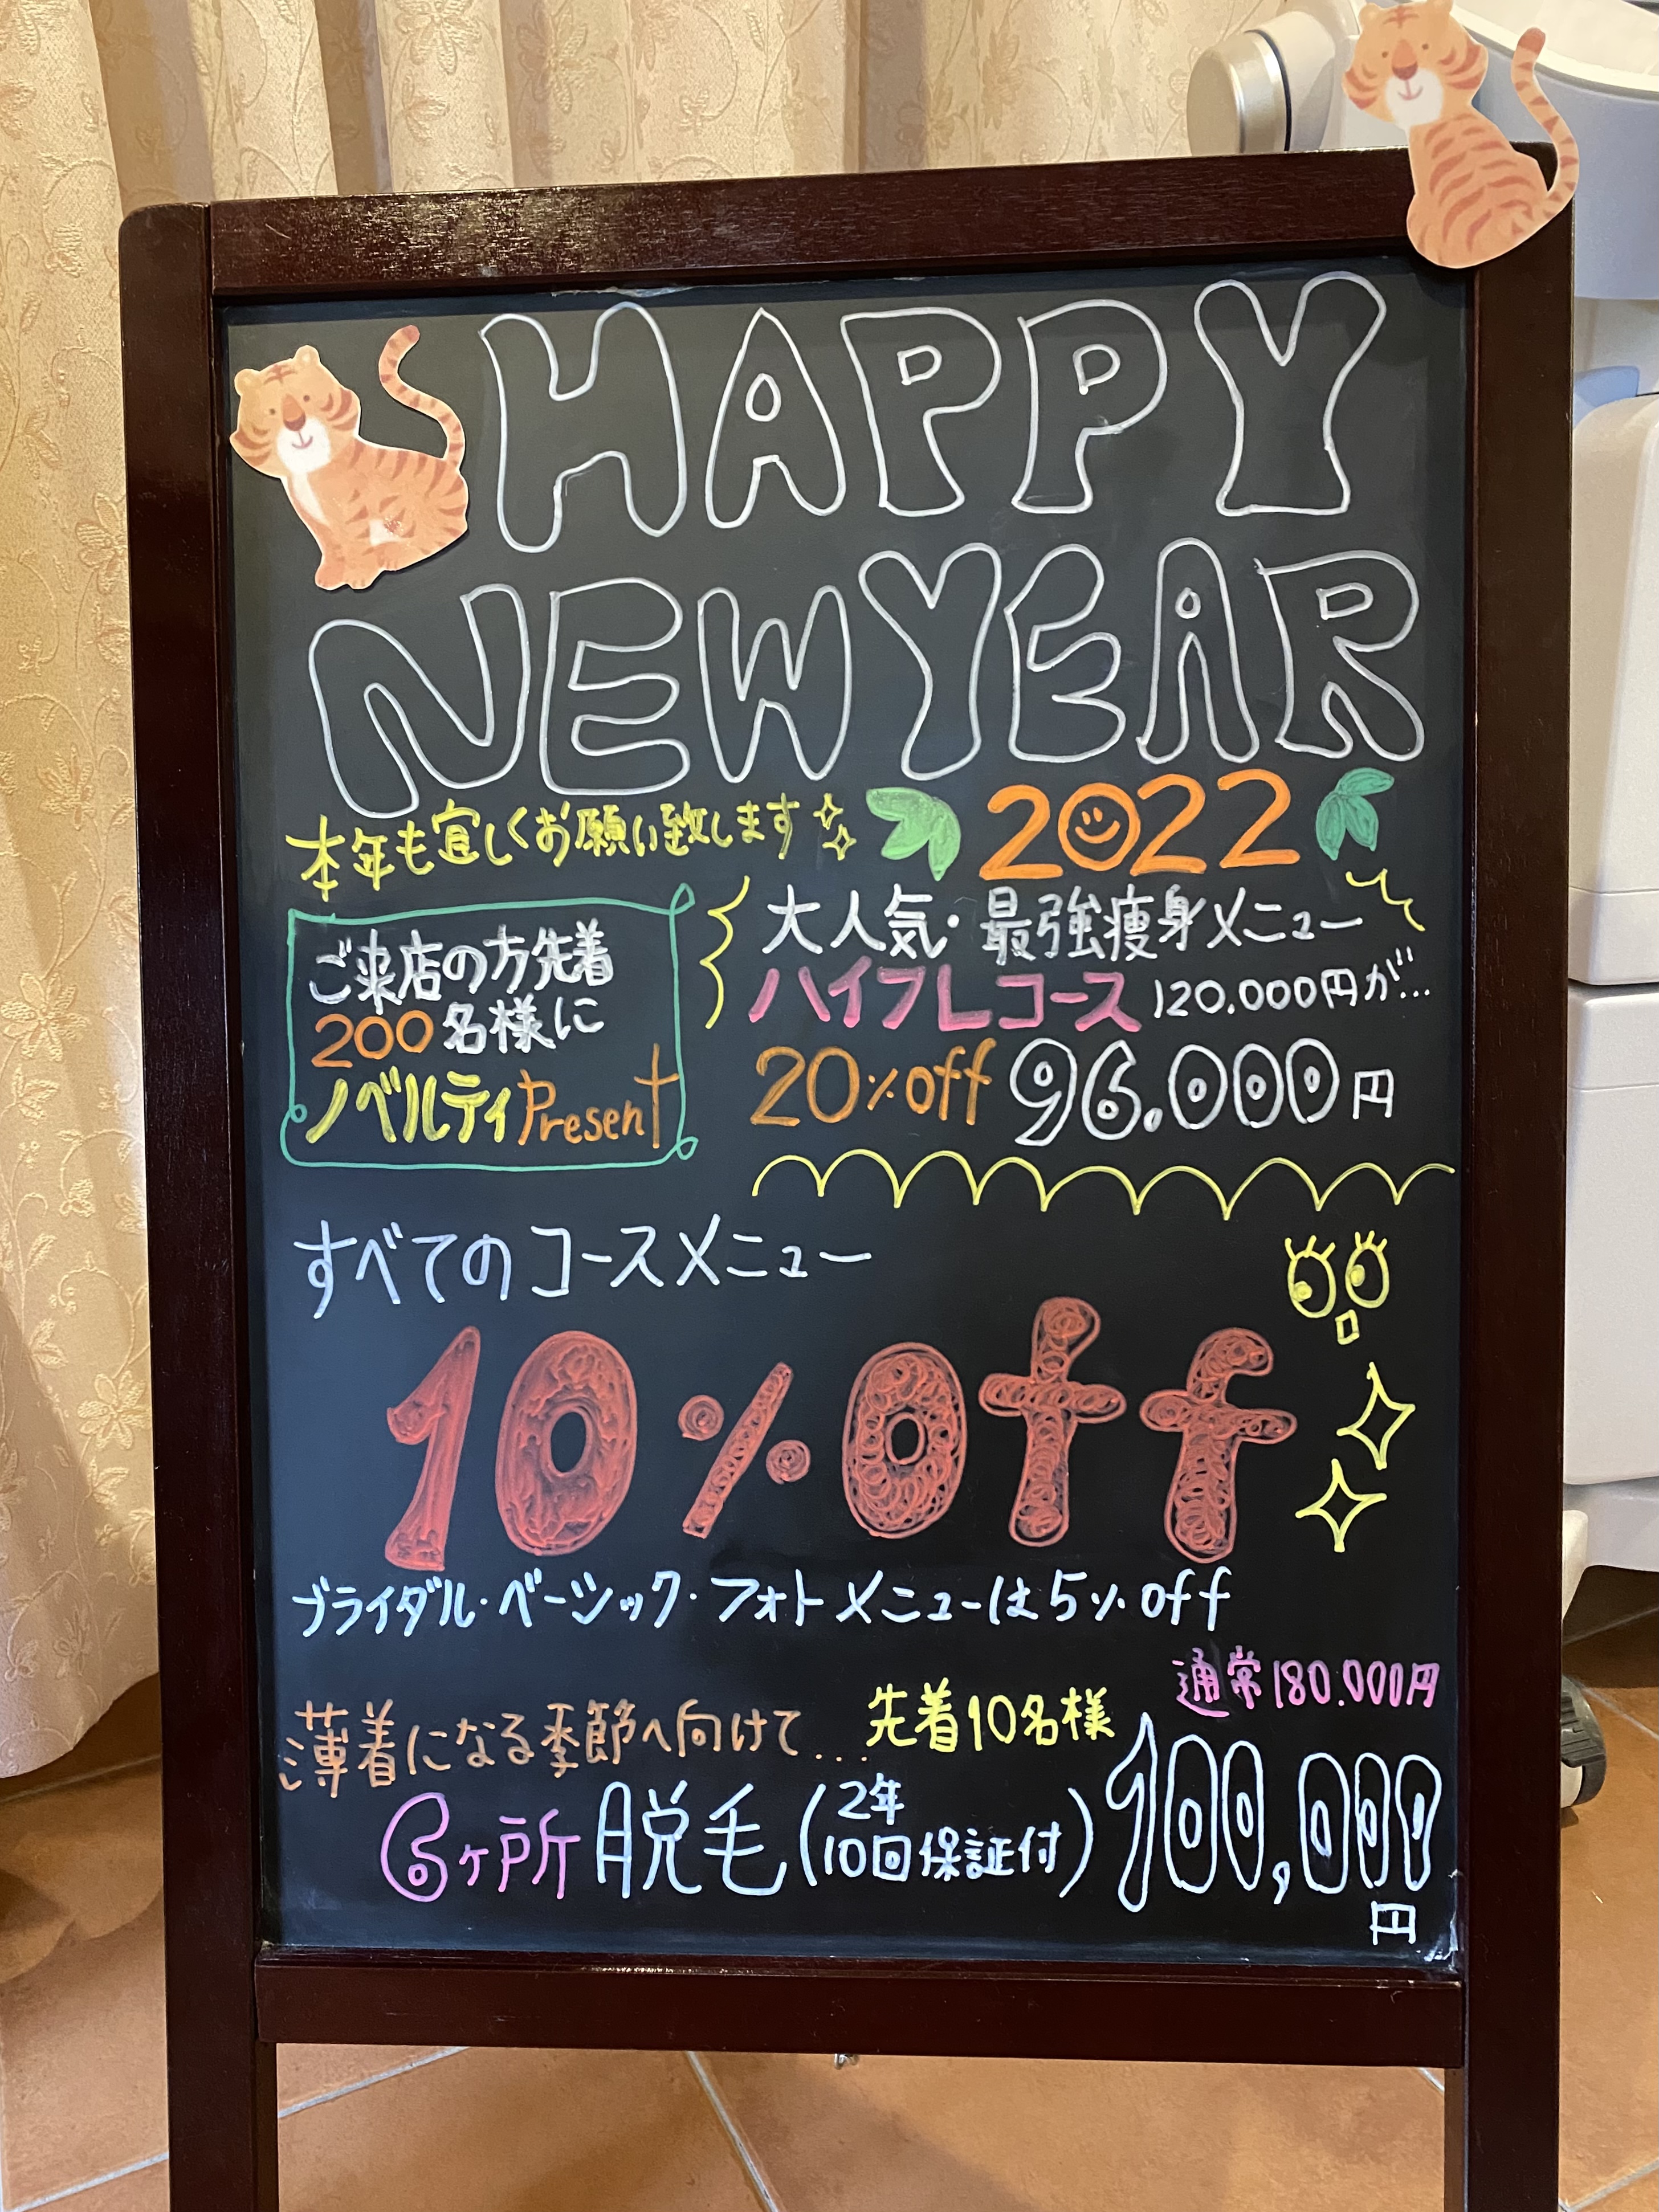 HAPPY
NEW YEAR
本年も宜しくお願い致します
2022
ご来店の方先着
200名様に
ノベルティPresent
大人気・最強痩身メニュー
ハイフレコース 120.000円が…
20%off 96.000円
すべてのコースメニュー
10%off
ブライダル・ベーシック・フォトメニューは5%off
薄着になる季節へ向けて...
先着10名様
通常180.000円
6ヶ所脱毛(2年
10回保証付)
100,000
円